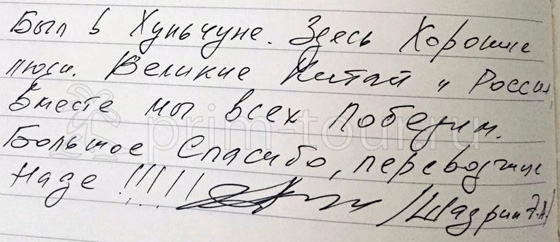 Был в Хуньчуне. Здесь Хорошие
люди. Великие Китай и Россия
Вместе мы всех Победим.
Большое Спасибо, переводчице
Наде !!!!! /Шадрин
prim-tour.ru